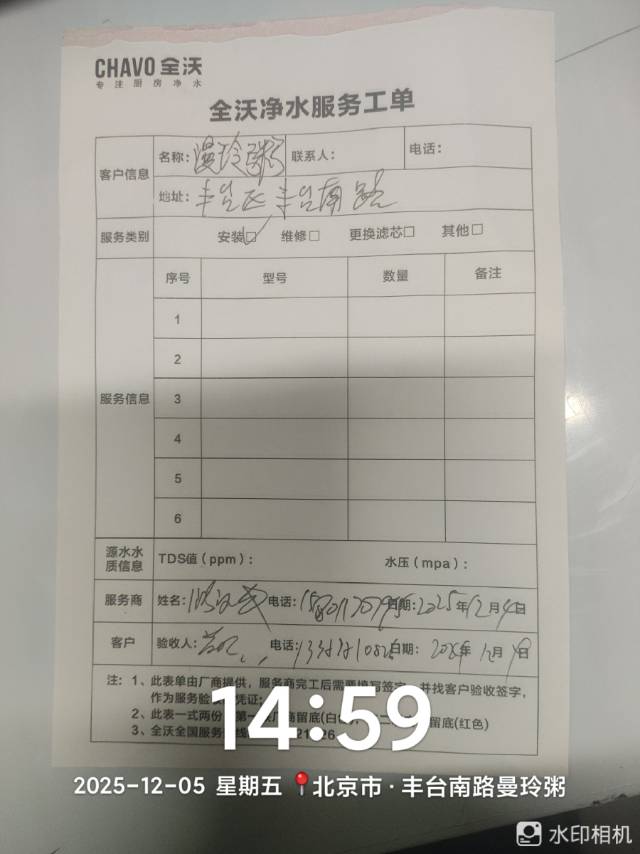 CHAVO 全沃
专注厨房净水
全沃净水服务工单
客户信息
名称：曼玲粥 联系人： 电话：
地址：丰台区丰台南路
服务类别 安装☑ 维修□ 更换滤芯□ 其他□
服务信息
序号 型号 数量 备注
1
2
3
4
5
6
源水水质信息 TDS值（ppm）： 水压（mpa）：
服务商 姓名： 电话： 日期：2025年12月4日
客户 验收人： 电话： 日期：2025年12月4日
注：1、此表单由厂商提供，服务商完工后需要填写签字，并找客户验收签字，
作为服务验 凭证；
2、此表一式两份 第一 厂商留底(白 二 留底(红色)
3、全沃全国服务 线
14:59
2025-12-05 星期五 📍北京市·丰台南路曼玲粥
水印相机